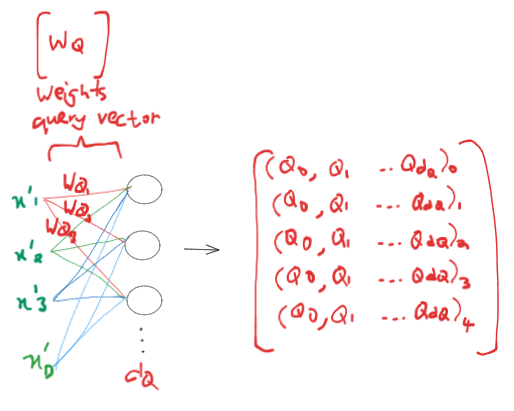 [WQ]
Weights
query vector
WQ1
x'1
WQ2
WQ3
x'2
x'3
x'D
dQ
(Q0, Q1 ... QdQ)0
(Q0, Q1 ... QdQ)1
(Q0, Q1 ... QdQ)2
(Q0, Q1 ... QdQ)3
(Q0, Q1 ... QdQ)4